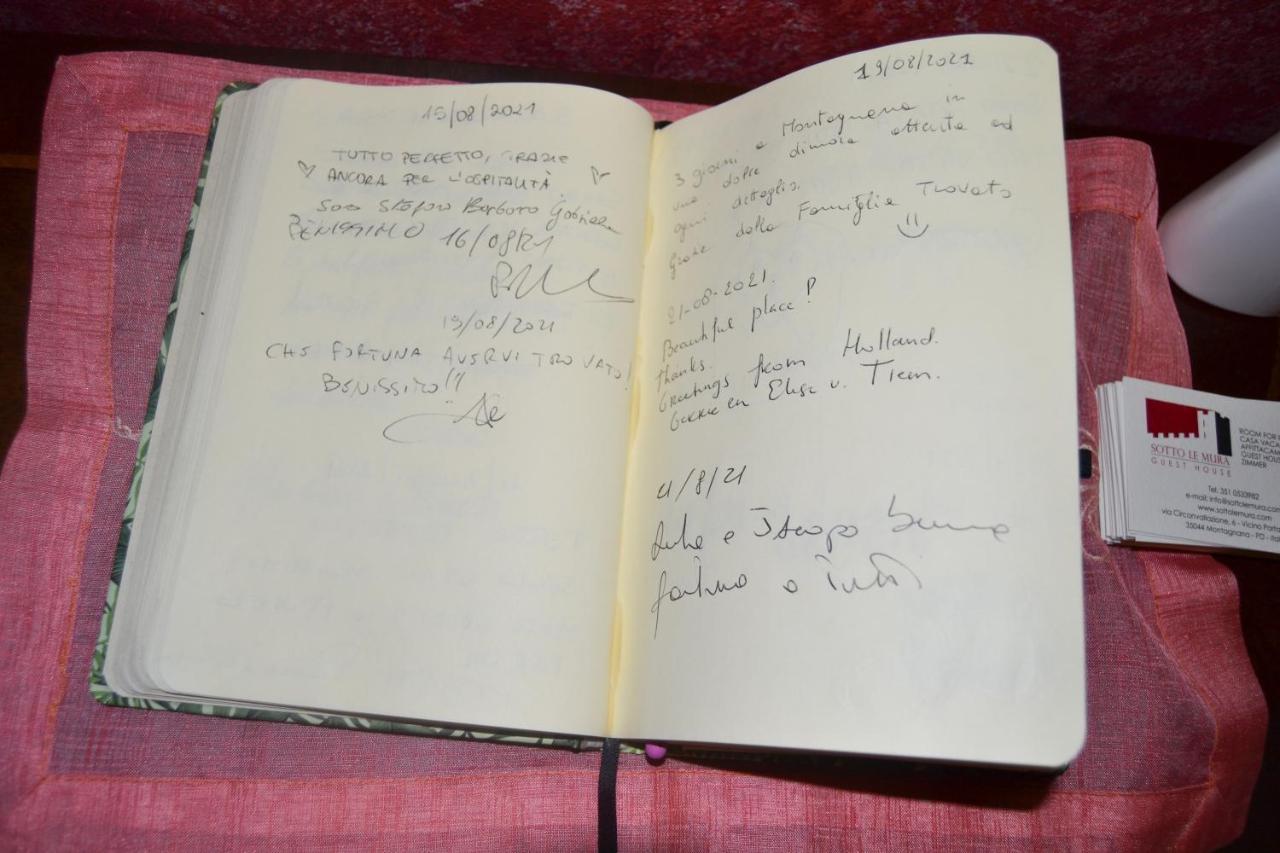 15/08/2021
TUTTO PERFETTO, GRAZIE
ANCORA PER L'OSPITALITÀ
Stefano Barbara Gabriele
BENISSIMO 16/08/21
19/08/2021
CHE FORTUNA AVERVI TROVATO!
BENISSIMO!!
19/08/2021
3 giorni a Montagnana in
una dolce dimora attenta ad
ogni dettaglio.
Grazie dalla Famiglia Trovato
21-08-2021.
Beautiful place!
thanks.
Greetings from Holland.
en Elise v.
/8/21
e buona
fortuna a Tutti
SOTTO LE MURA
GUEST HOUSE
ROOM FOR
CASA VACA
AFFITTACAM
GUEST HOUS
ZIMMER
Tel. 351 0533982
e-mail: info@sottolemura.com
www.sottolemura.com
via Circonvallazione, 6 - Vicino Por
35044 Montagnana - PD - Ital